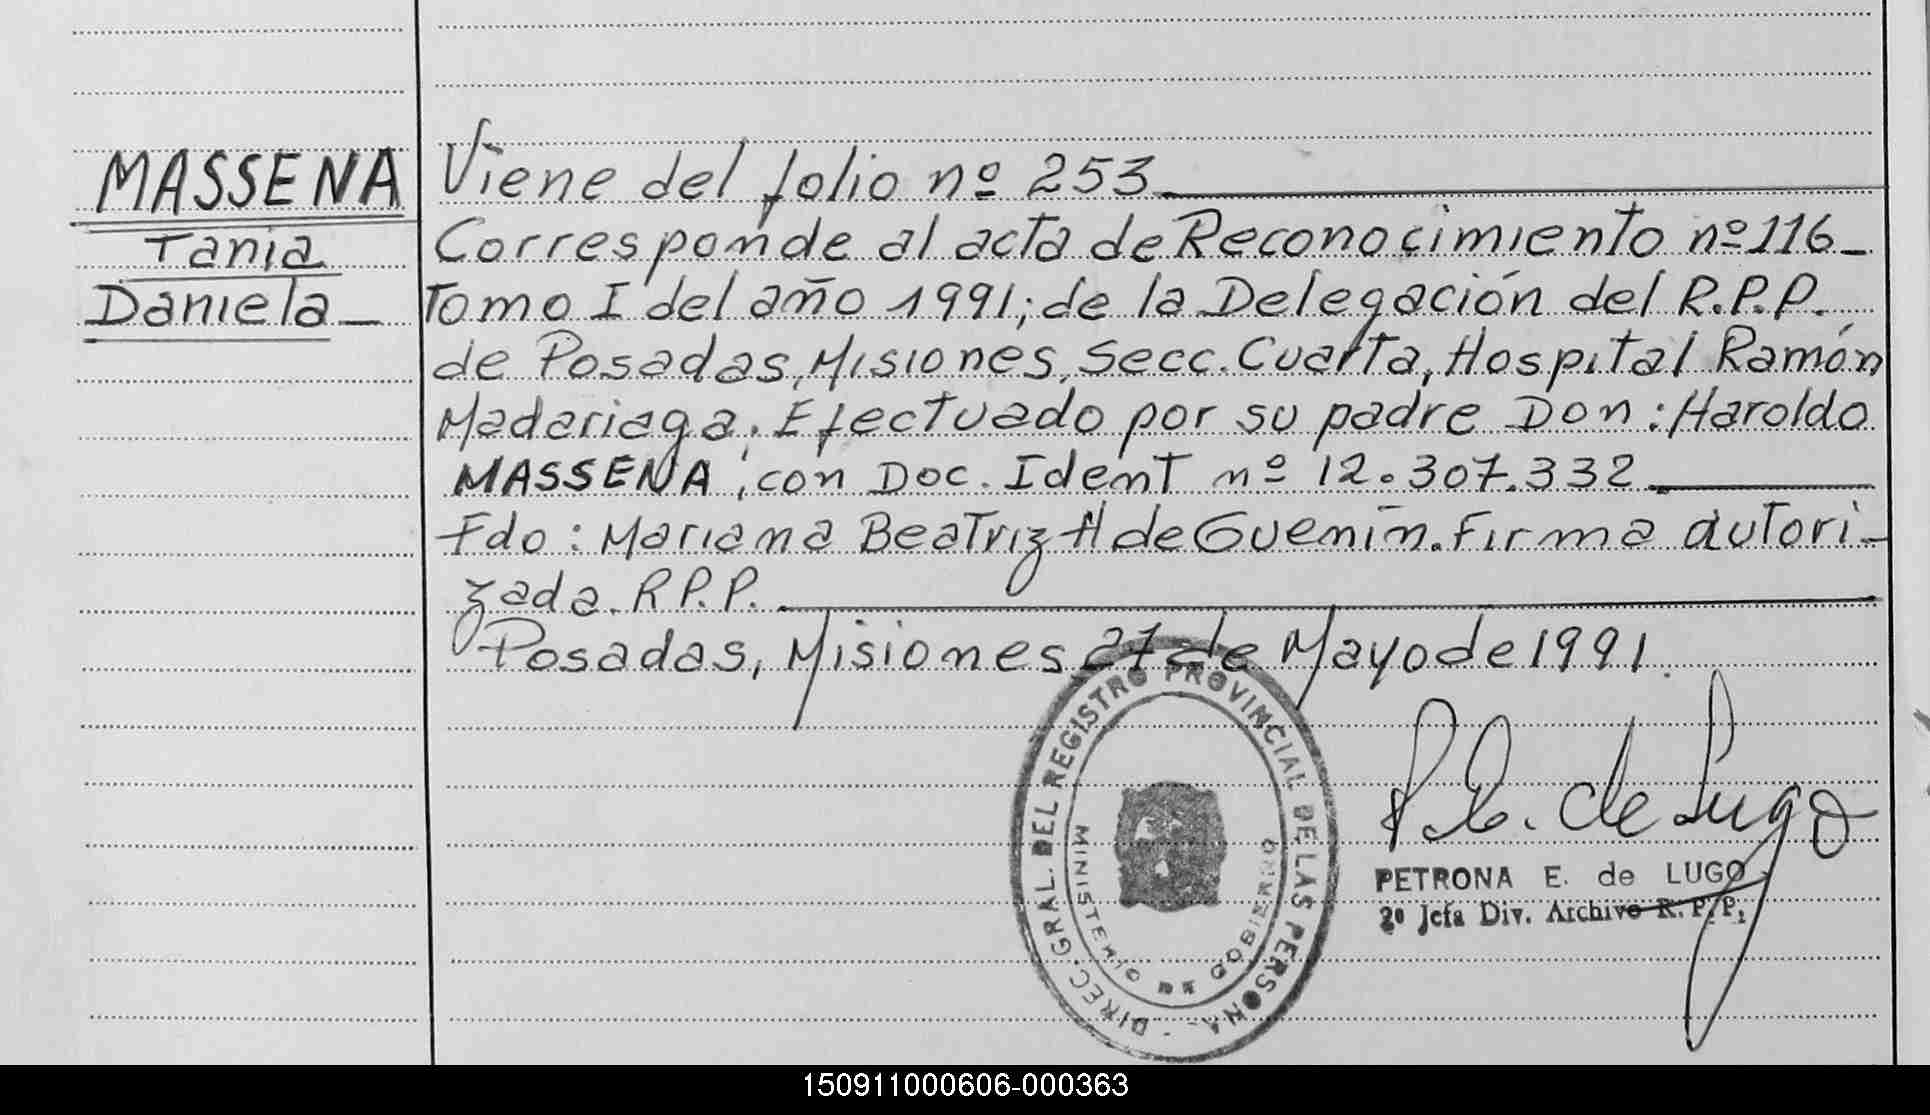 MASSENA
Tania
Daniela_
Viene del folio nº 253
Corresponde al acta de Reconocimiento nº 116_
Tomo I del año 1991; de la Delegación del R.P.P.
de Posadas, Misiones, Secc. Cuarta, Hospital Ramón
Madariaga. Efectuado por su padre Don: Haroldo
MASSENA, con Doc. Ident nº 12.307.332
Fdo: Mariana Beatriz H de Guenín. Firma autori-
zada. R P.P.
Posadas, Misiones, 27 de Mayo de 1991.
DIREC. GRAL. DEL REGISTRO PROVINCIAL DE LAS PERSONA.
MINISTERIO DE GOBIERNO
P. E. de Lugo
PETRONA E. de LUGO
2º Jefa Div. Archivo R. P. P.
150911000606-000363